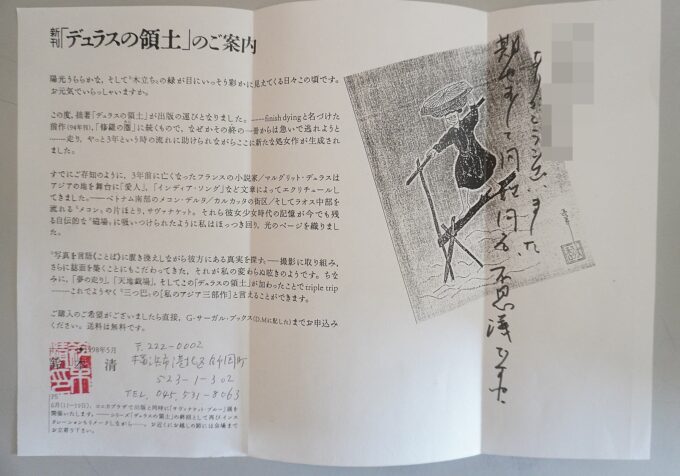 新刊「デュラスの領土」のご案内
陽光うららかな，そして木立ちの緑が目にいっそう彩かに見えてくる日々この頃です。
お元気でいらっしゃいますか。
この度，拙著「デュラスの領土」が出版の運びとなりました。——finish dyingと名づけた
前作（94年刊），「修羅の圏」に続くもので，なぜかその終の一番からは急いで逃れようと
——走り，やっと3年という時の流れに助けられながらここに新たな処女作が生成され
ました。
すでにご存知のように，3年前に亡くなったフランスの小説家／マルグリット・デュラスは
アジアの地を舞台に「愛人」，「インディア・ソング」など文章によってエクリチュールし
てきました。——ベトナム南部のメコン・デルタ／カルカッタの街区／そしてラオス中部を
流れる"メコン"の片ほとり，サヴァナケット。それら彼女少女時代の記憶が今でも残
る自伝的な"磁場"に吸いつけられたように私はほっつき回り，光のページを織りまし
た。
"写真を言語（ことば）に置き換えしながら彼方にある真実を探す。——撮影に取り組み，
さらに誌面を築くことにもこだわってきた，それが私の変わらぬ呟きのようです。ちな
みに，「夢の走り」，「天地戯場」，そしてこの「デュラスの領土」が加わったことでtriple trip
——これでようやく"三つ巴"の「私のアジア三部作」と言えることができます。
ご購入のご希望がございましたら直接，G・サーガル・ブックス（D.Mに配した）までお申込み
ください。送料は無料です。
1998年5月
鈴木 清
〒222-0002
横浜市港北区師岡町
523-1-302
TEL, 045, 531-8063
PS
6月（11〜19日），コニカプラザで出版と同時に「サヴァナケット・ブルー」展を
開催いたします。——シリーズ「デュラスの領土」の終回として再びインス
タレーションもリメークしながら——。お近くにお越しの節には会場まで
お立寄り下さい。
ありがとうございました